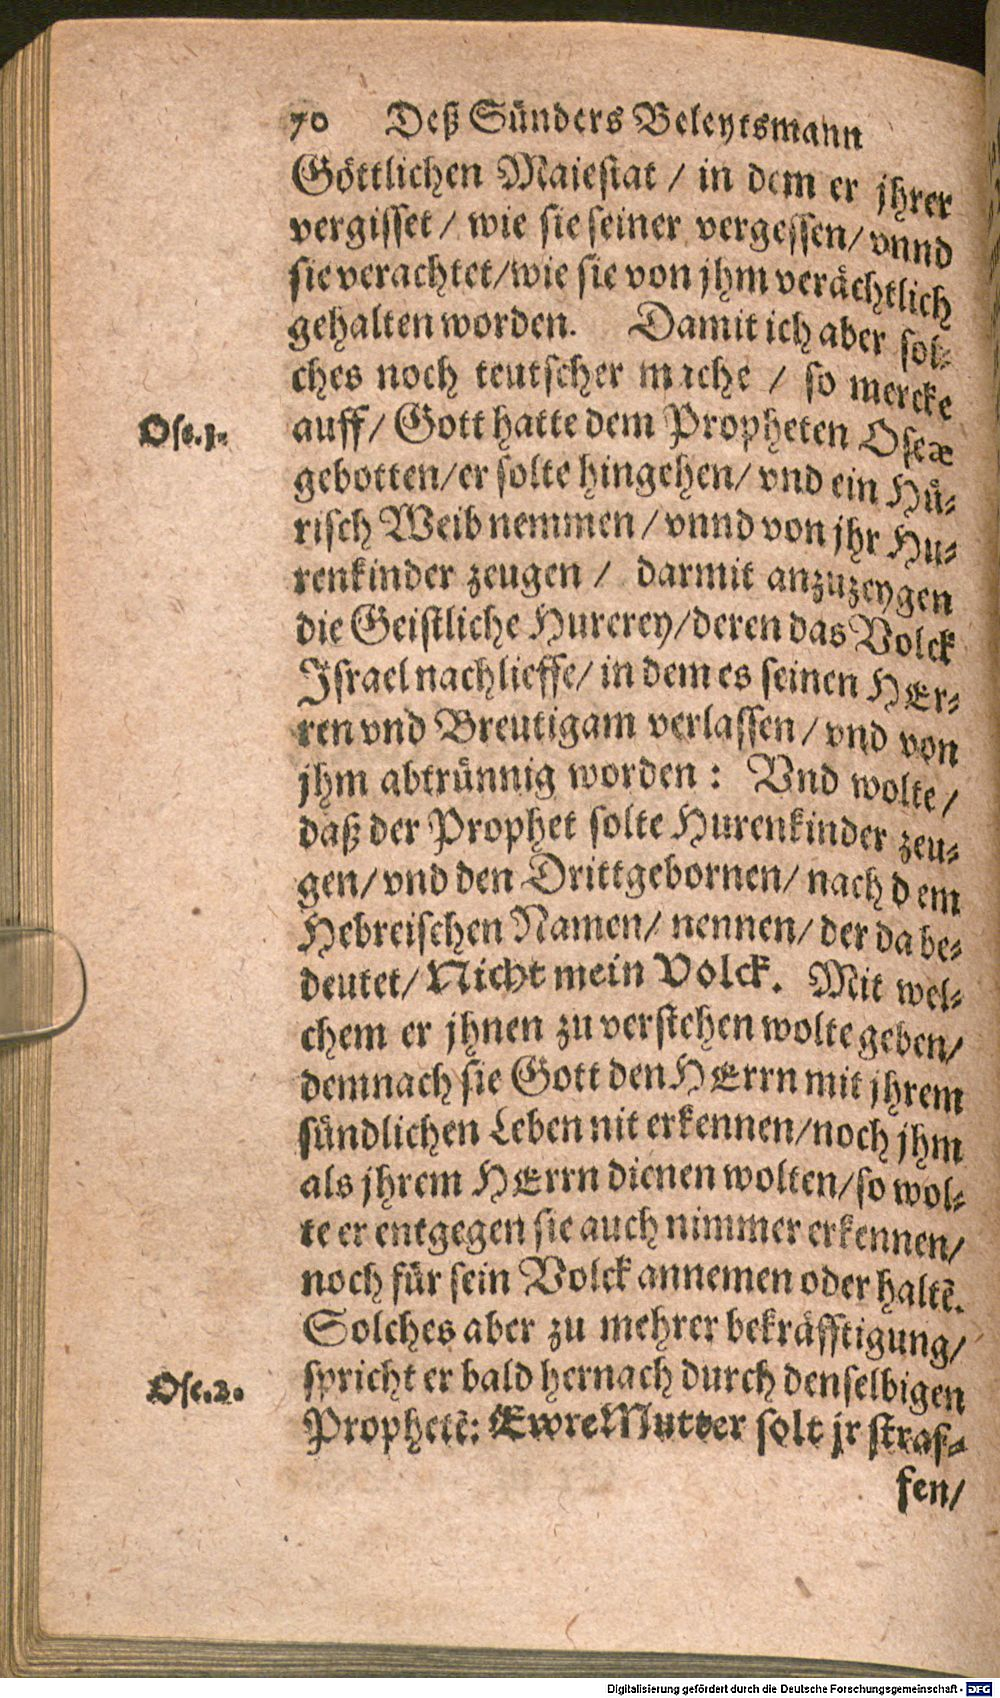 70 Deß Sünders Beleytsmann
Göttlichen Maiestat / in dem er jhrer
vergisset / wie sie seiner vergessen / vnnd
sie verachtet / wie sie von jhm verächtlich
gehalten worden. Damit ich aber sol-
ches noch teutscher mache / so mercke
Ose. 1. auff / Gott hatte dem Propheten Oseæ
gebotten / er solte hingehen / vnd ein Hů-
risch Weib nemmen / vnnd von jhr Hu-
renkinder zeugen / darmit anzuzeygen
die Geistliche Hurerey / deren das Volck
Israel nachlieffe / in dem es seinen HEr-
ren vnd Breutigam verlassen / vnd von
jhm abtrünnig worden : Vnd wolte /
daß der Prophet solte Hurenkinder zeu-
gen / vnd den Drittgebornen / nach dem
Hebreischen Namen / nennen / der da be-
deutet / Nicht mein Volck. Mit wel-
chem er jhnen zu verstehen wolte geben /
demnach sie Gott den HErrn mit jhrem
sündlichen Leben nit erkennen / noch jhm
als jhrem HErrn dienen wolten / so wol-
te er entgegen sie auch nimmer erkennen /
noch für sein Volck annemen oder haltẽ.
Solches aber zu mehrer bekräfftigung /
Ose. 2. spricht er bald hernach durch denselbigen
Prophetẽ: Ewre Mutter solt jr straf-
fen /
Digitalisierung gefördert durch die Deutsche Forschungsgemeinschaft - DFG